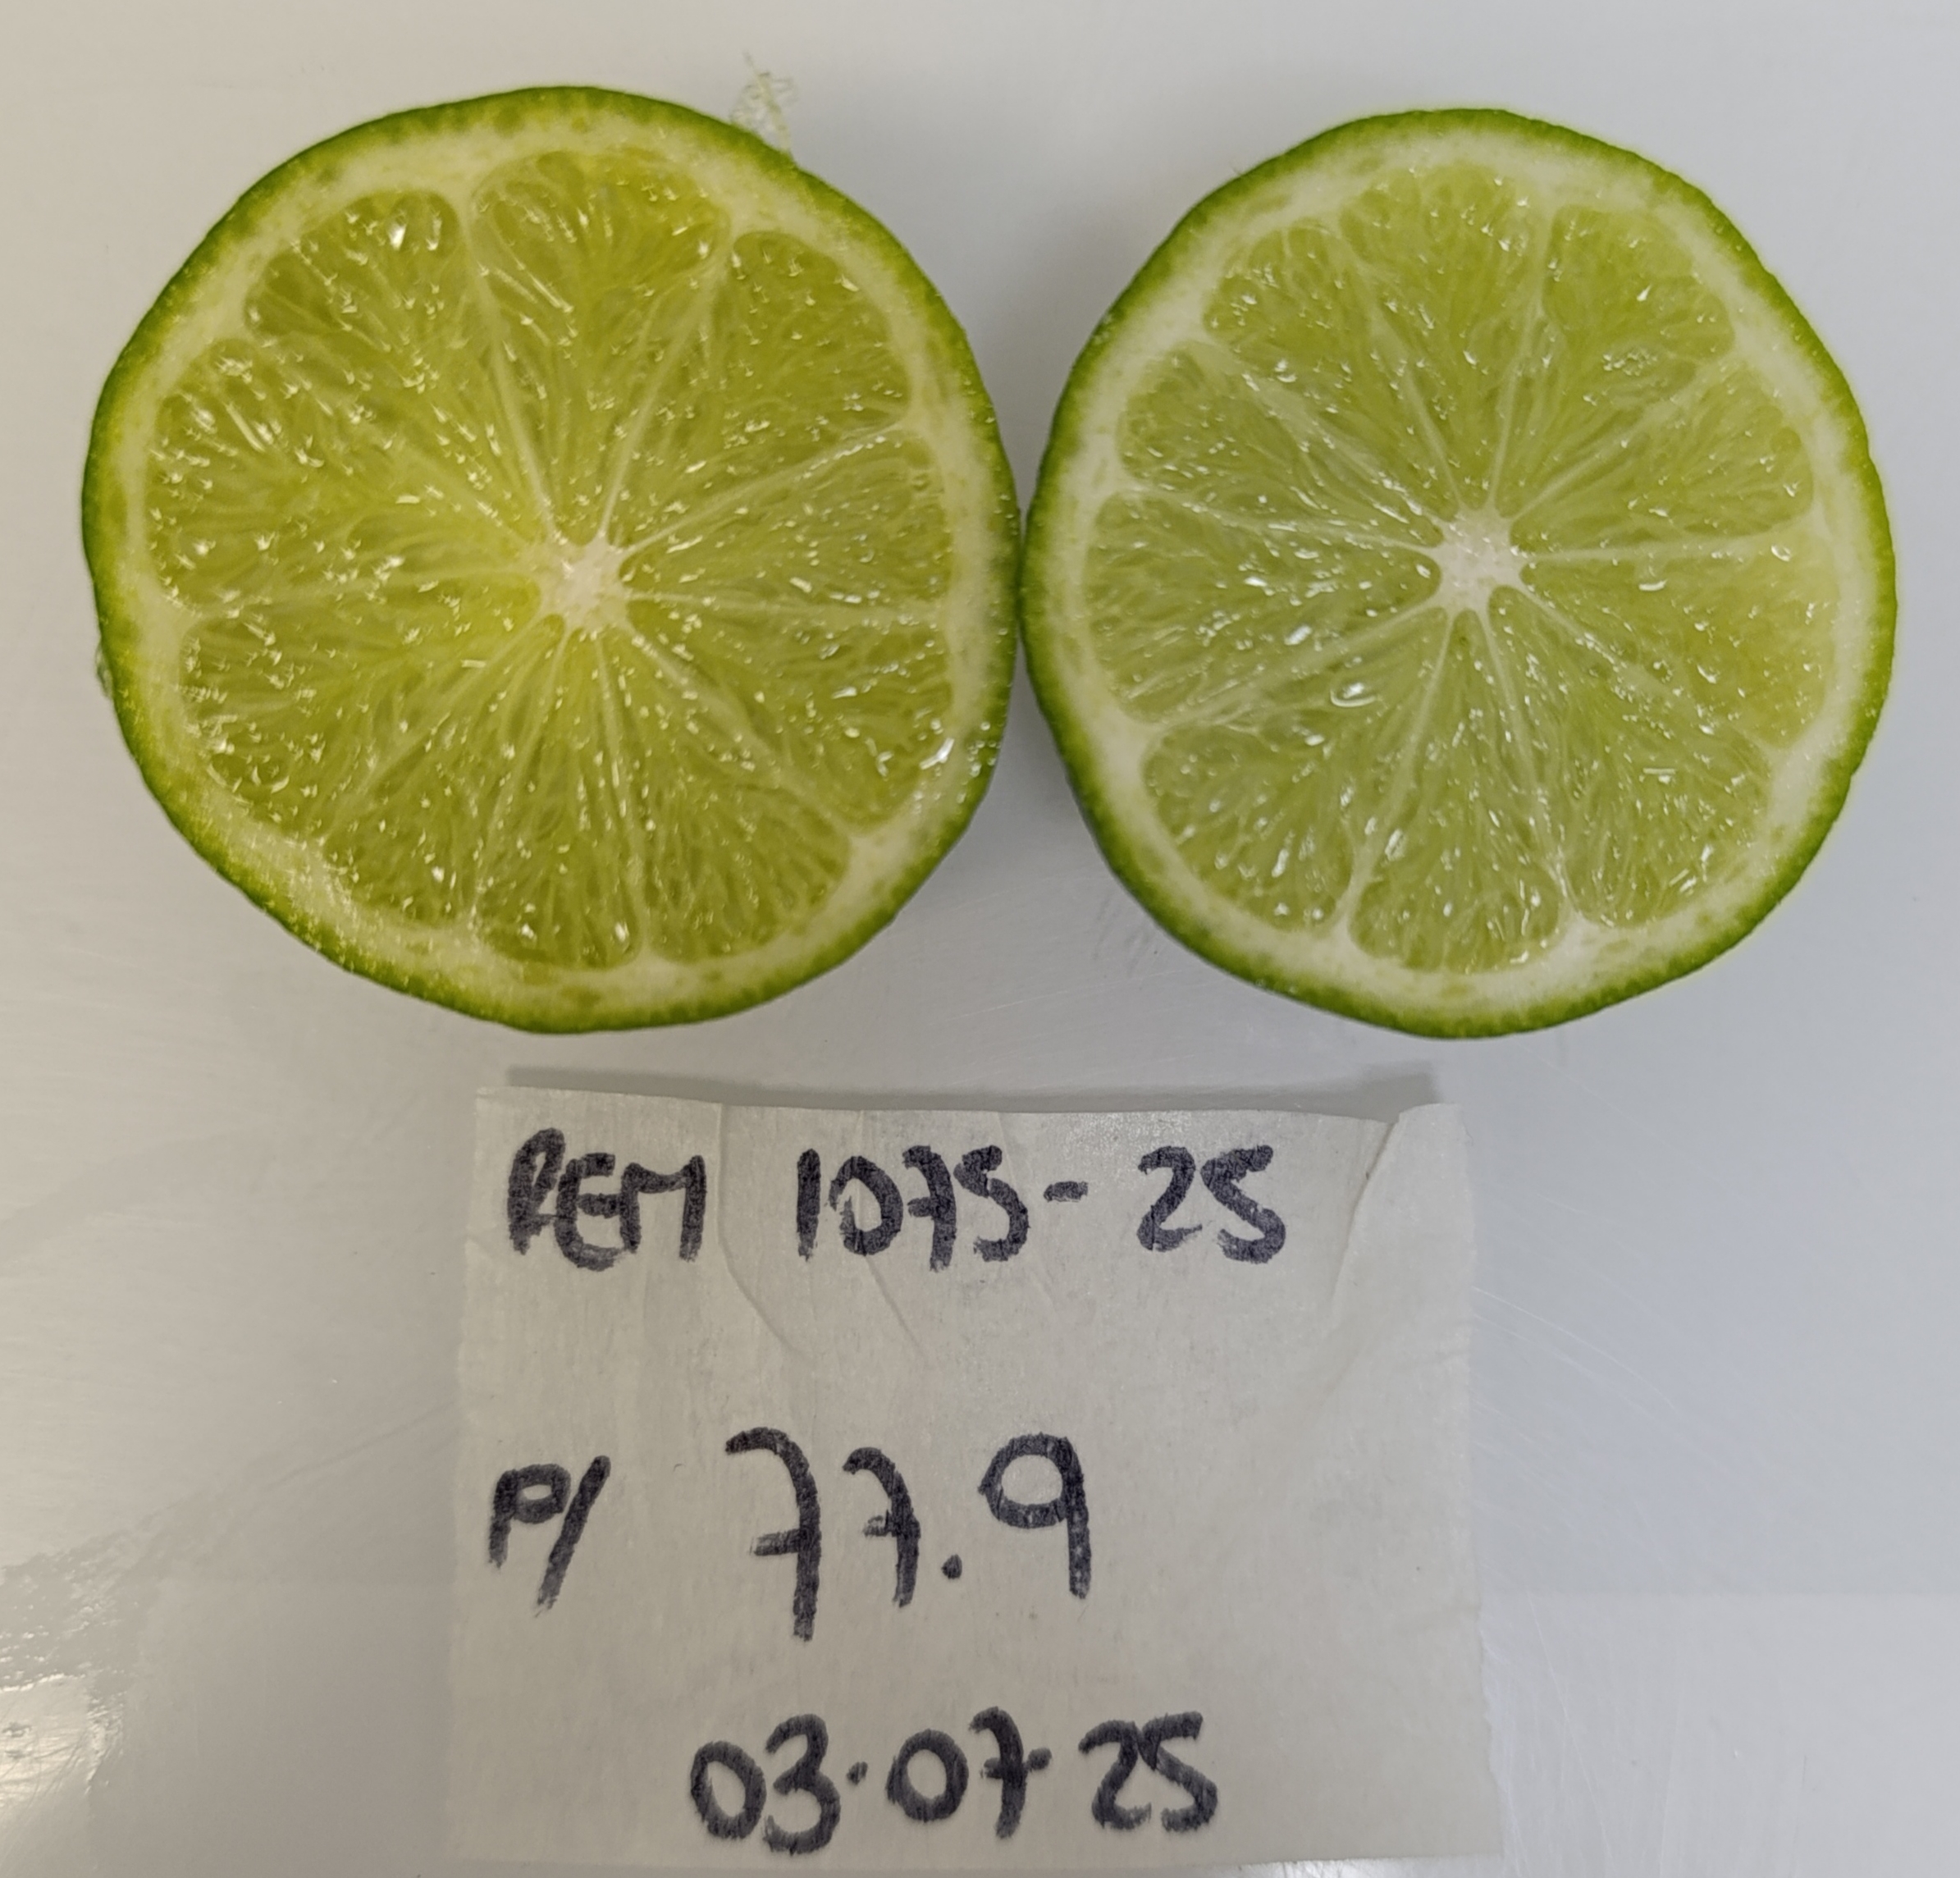 REM 1075-25
P/ 77.9
03.07.25